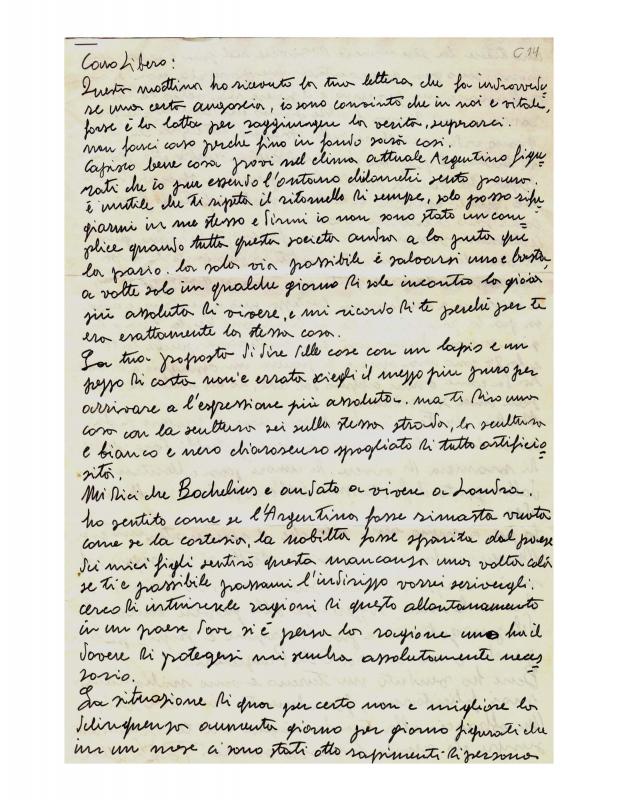 C 14
Caro Libero:
Questa mattina ho ricevuto la tua lettera che fa indravvede
se una certa angoscia, io sono convinto che in noi e vitale,
forse è la lotta per raggiungere la verita, superarci.
non farci caso perchè fino in fondo sarà cosi.
Capisco bene cosa provi nel clima attuale Argentino figu
rati che io pur essendo lontano chilometri sento paura.
è inutile che ti ripeta il ritornello di sempre, solo posso rifu
giarmi in me stesso e dirmi io non sono stato un com
plice quando tutta questa società andra a la puta que
la pario. la sola via possibile è salvarsi uno e basta,
a volte solo in qualche giorno di sole incontro la gioia
più assoluta di vivere, e mi ricordo di te perchè per te
era esattamente la stessa cosa.
La tua proposta di dire delle cose con un lapis e un
pezzo di carta non'e errata sciegli il mezzo piu puro per
arrivare a l'espressione più assoluta. ma ti dirò una
cosa con la scultura sei sulla stessa strada, la scultura
e bianco e nero chiaroscuro spogliato di tutto artificio
sità.
Mi dici che Bachelius e andato a vivere a Londra.
ho sentito come se l'Argentina fosse rimasta vuota
come se la cortesia, la nobiltà fosse sparita dal paese
dei miei figli sentirò questa mancanza una volta colà
se ti è possibile passami l'indirizzo vorrei scrivergli.
cerco di intuire le ragioni di questo allontanamento
in un paese dove si è persa la ragione uno ha il
dovere di protegersi mi sembra assolutamente neces
sario.
La situazione di qua per certo non e migliore la
delinquenza aumenta giorno per giorno figurati che
in un mese ci sono stati otto rapimenti di persona